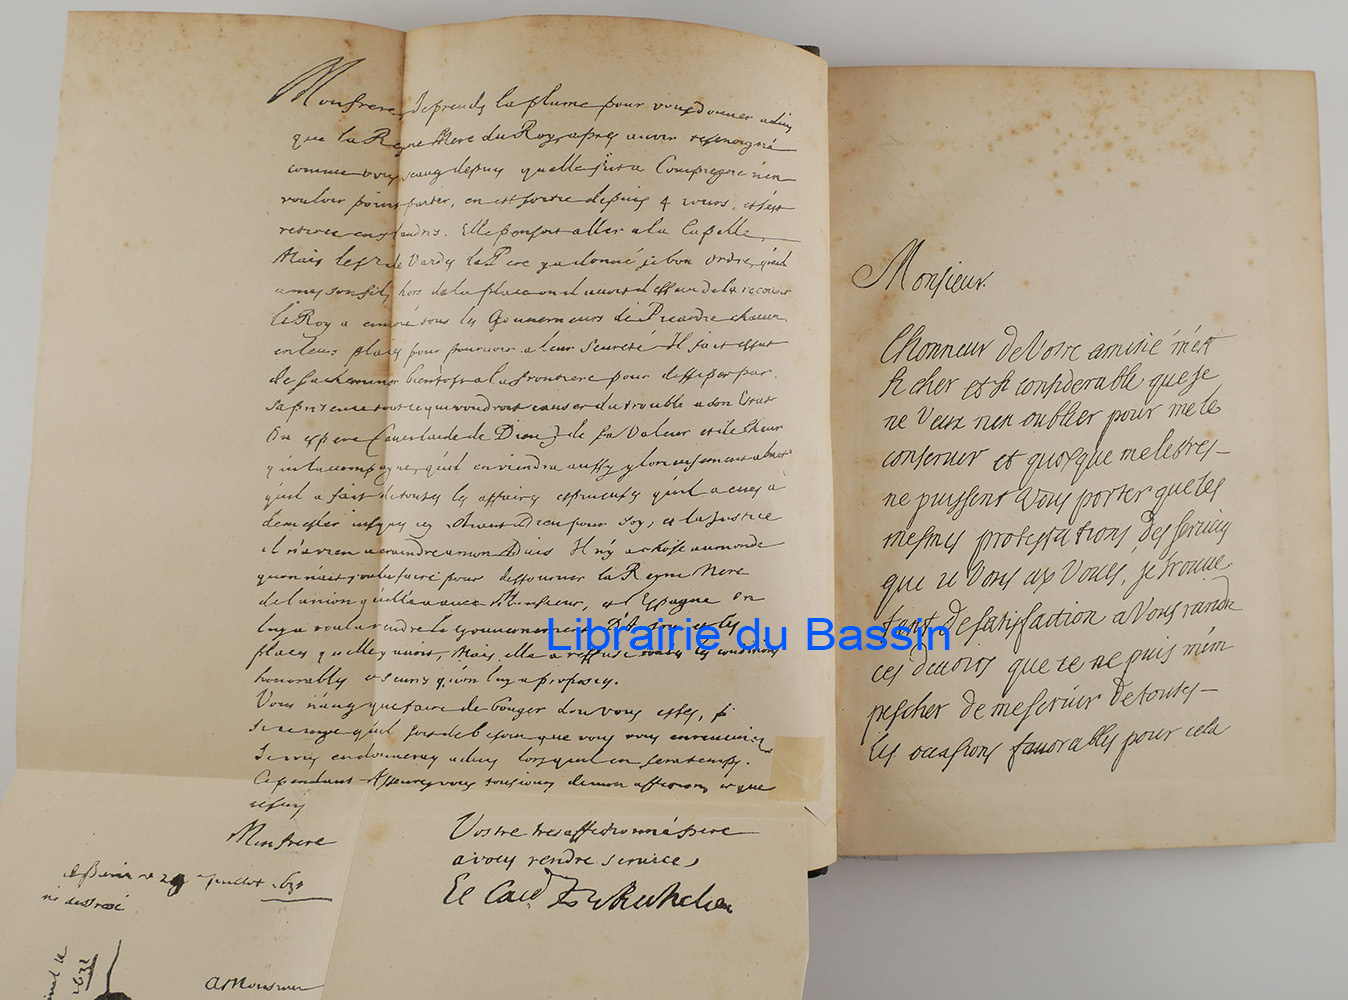 Monfrere Je prends la plume pour vous donner advis
que la Reyne Mere du Roy apres avoir tesmoigné
comme vous scavez depuis quelle est a Compiegne n'en
vouloir point partir, en est sortie depuis 4 jours, et s'est
retiree en flandres. Elle pensoit aller a la Capelle
Mais le Sr de Vardes le Pere y a donné si bon ordre, quil
a mis son fils hors de la place ou il avoit dessein de la recevoir
le Roy a envoié tous les Gouverneurs de Picardie chacun
en leurs places pour pourvoir a leur seureté Il fait estat
de sacheminer bientost a la frontiere pour dissiper par
sa presence tout ce qui voudroit causer du trouble a son Estat
On espere de Dieu de sa Valeur et
qui l'accompagne, quil en viendra aussy glorieusement a bout
quil a fait de toutes les affaires quil a eues a
demesler jusques icy Aiant Dieu pour soy, et la Justice
il n'a rien a craindre a mon advis Il n'y a chose au monde
quon n'ait voulu faire pour destourner la Reyne Mere
de l'union quelle a avec Monsieur, et l'Espagne On
luy a voulu rendre le Gouvernement et les
places quelle y avoit, Mais elle a refusé toutes les conditions
honorables et seures qu'on luy a proposees.
Vous n'avez que faire de bouger dou vous estes, si
quil soit de besoin que vous vous en reveniez
Je vous en donneray advis lors quil en sera temps.
Cependant Asseurez vous tousjours de mon affection et que
je suis
Monfrere
Vostre tres affectionné frere
a vous rendre service
Le Card de Richelieu
29 Juillet 1631
1631
A Monsieur
Monsieur.
l'honneur de Votre amitié m'est
si cher et si considerable que je
ne Veux rien oublier pour me le
conserver et quoyque me lestres
ne puissent Vous porter que les
mesmes protestations des services
que je Vous ay Voués, je trouve
tant de satisfaction a Vous randre
ces devoirs que je ne puis m'em
pescher de me servir de toutes
les occasions favorables pour cela
Librairie du Bassin